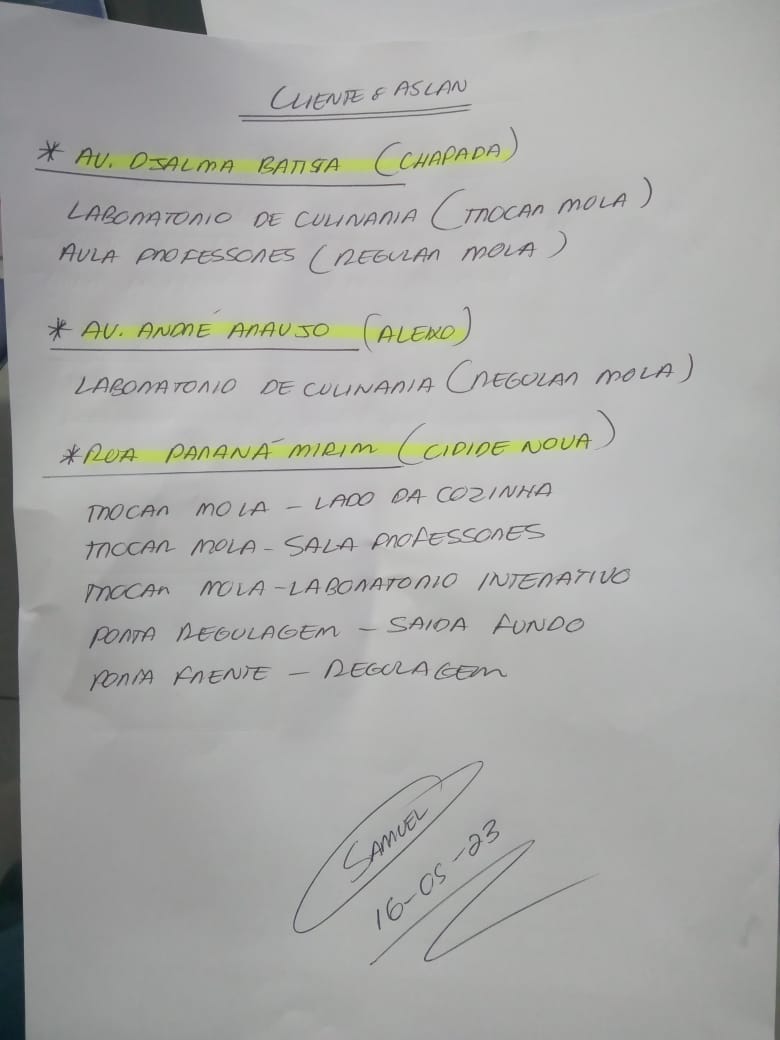 CLIENTE & ASLAN
* AV. DJALMA BATISA (CHAPADA)
LABORATORIO DE CULINARIA (TROCAR MOLA)
AULA PROFESSORES (REGULAR MOLA)
* AV. ANDRÉ ARAUJO (ALEIXO)
LABORATORIO DE CULINARIA (REGULAR MOLA)
* RUA PARANÁ MIRIM (CIDIDE NOVA)
TROCAR MOLA - LADO DA COZINHA
TROCAR MOLA - SALA PROFESSORES
TROCAR MOLA - LABORATORIO INTERATIVO
PORTA REGULAGEM - SAIDA FUNDO
PORTA FRENTE - REGULAGEM
SAMUEL
16-05-23